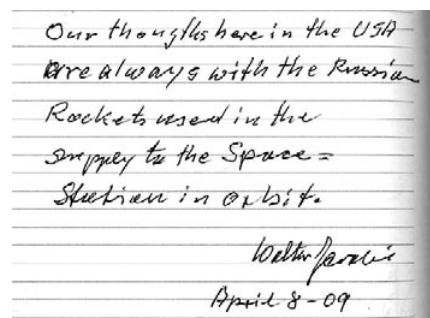 Our thoughts here in the USA
are always with the Russian
Rockets used in the
supply to the Space =
Station in orbit.
Walter
April 8-09